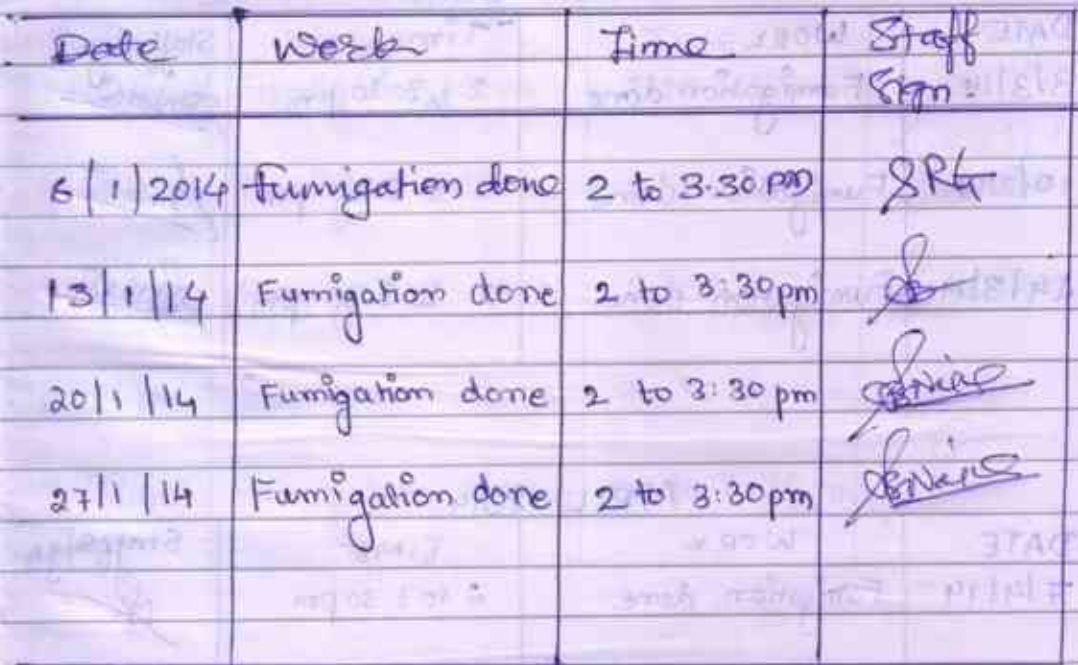 Date Work Time Staff
Sign.
6/1/2014 Fumigation done 2 to 3.30 pm SRG
13/1/14 Fumigation done 2 to 3:30pm
20/1/14 Fumigation done 2 to 3:30 pm
27/1/14 Fumigation done 2 to 3:30pm